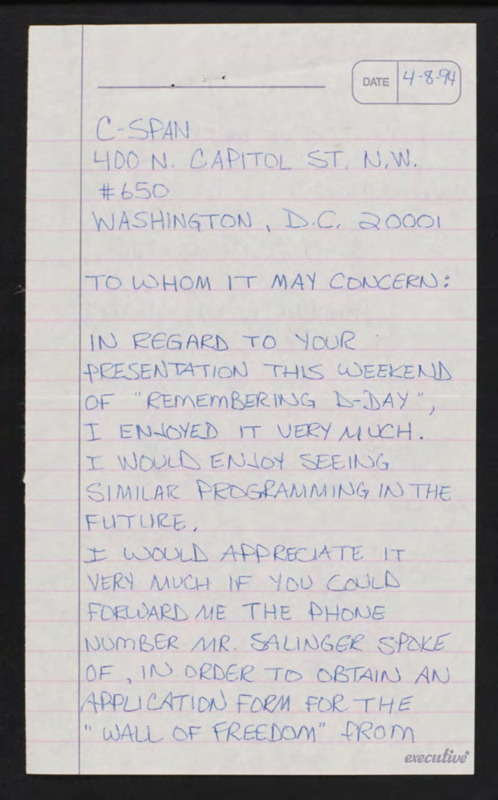 DATE 4-8-94
C-SPAN
400 N. CAPITOL ST. N.W.
#650
WASHINGTON, D.C. 20001
TO WHOM IT MAY CONCERN:
IN REGARD TO YOUR
PRESENTATION THIS WEEKEND
OF "REMEMBERING D-DAY",
I ENJOYED IT VERY MUCH.
I WOULD ENJOY SEEING
SIMILAR PROGRAMMING IN THE
FUTURE.
I WOULD APPRECIATE IT
VERY MUCH IF YOU COULD
FORWARD ME THE PHONE
NUMBER MR. SALINGER SPOKE
OF, IN ORDER TO OBTAIN AN
APPLICATION FORM FOR THE
"WALL OF FREEDOM" FROM
executive